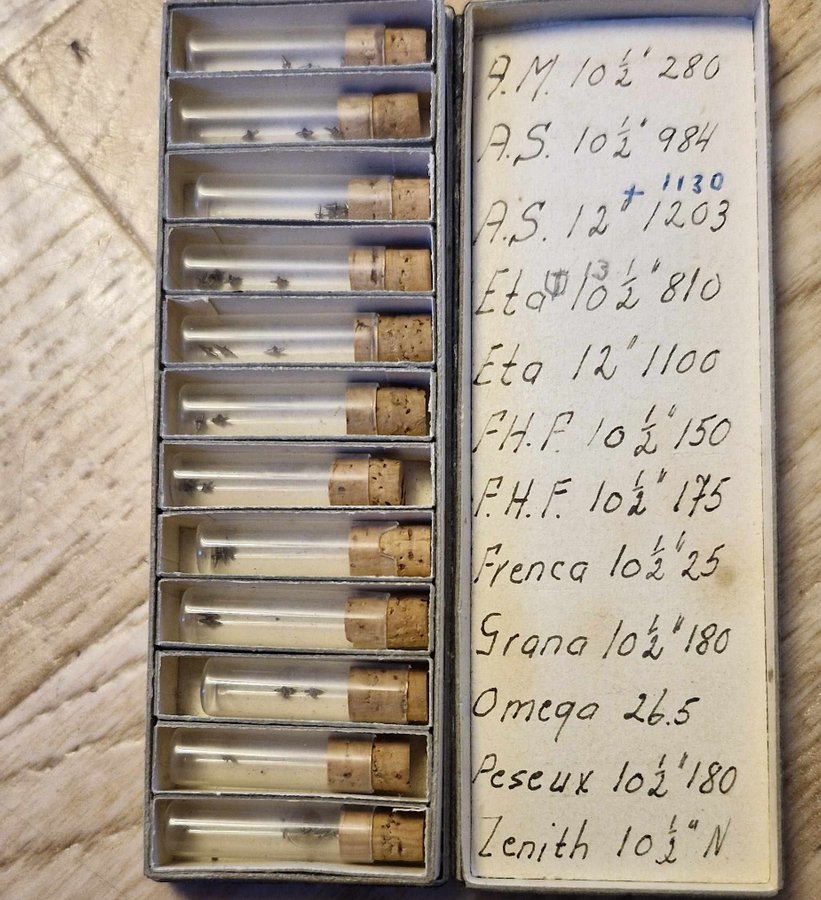 A.M. 10 ½" 280
A.S. 10 ½" 984
+ 1130
A.S. 12" 1203
Eta 13 ½" 810
Eta 12" 1100
F.H.F. 10 ½" 150
F.H.F. 10 ½" 175
Frenca 10 ½" 25
Grana 10 ½" 180
Omega 26.5
Peseux 10 ½" 180
Zenith 10 ½" N